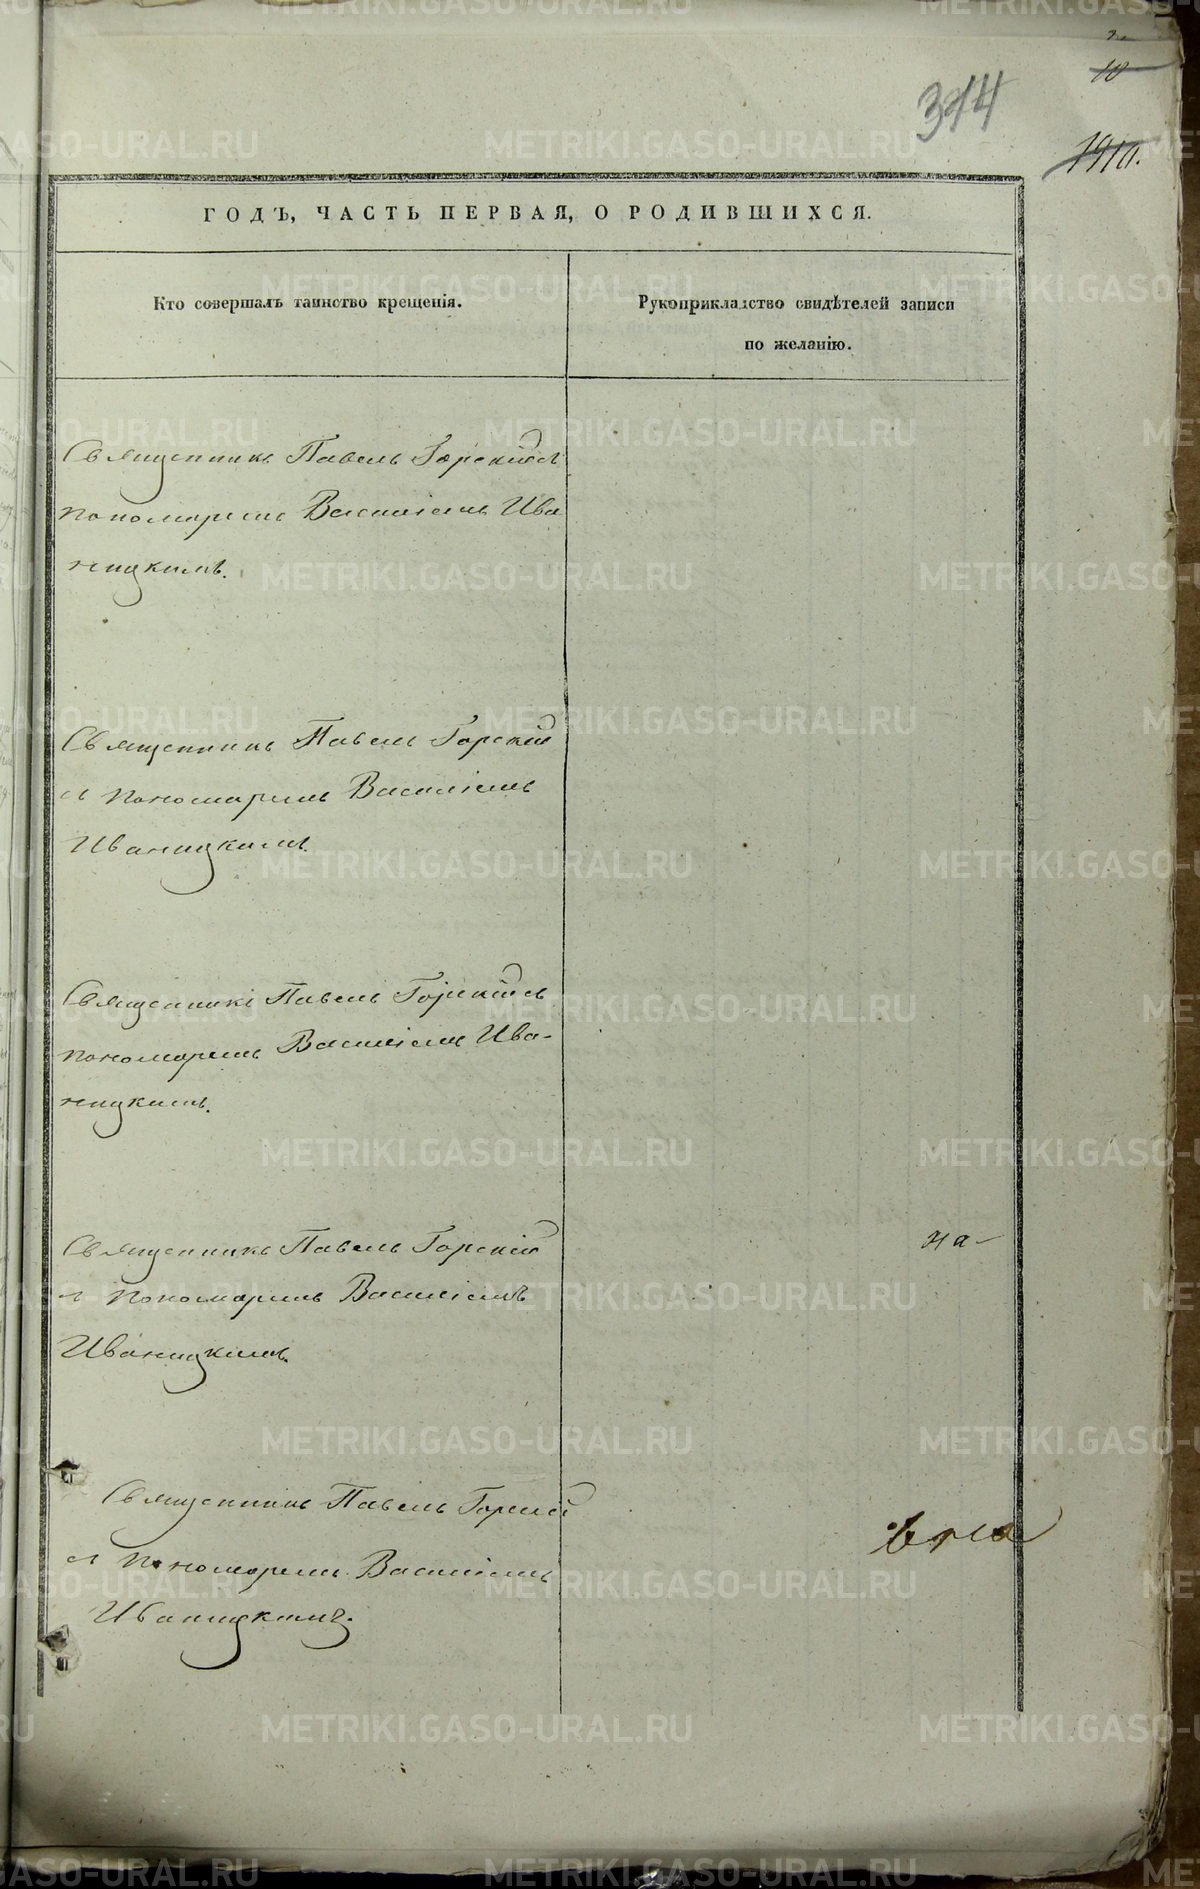 344
10
1910.
ГОДЪ, ЧАСТЬ ПЕРВАЯ, О РОДИВШИХСЯ.
Кто совершалъ таинство крещенія.
Рукоприкладство свидѣтелей записи
по желанію.
Священникъ Павелъ Горскій съ
пономаремъ Василіемъ Ива
ницкимъ.
Священникъ Павелъ Горскій
съ пономаремъ Василіемъ
Иваницкимъ
Священникъ Павелъ Горскій съ
пономаремъ Василіемъ Ива-
ницкимъ.
Священникъ Павелъ Горскій
съ пономаремъ Василіемъ
Иваницкимъ.
на-
Священникъ Павелъ Горскій
съ пономаремъ Василіемъ
Иваницкимъ.
METRIKI.GASO-URAL.RU